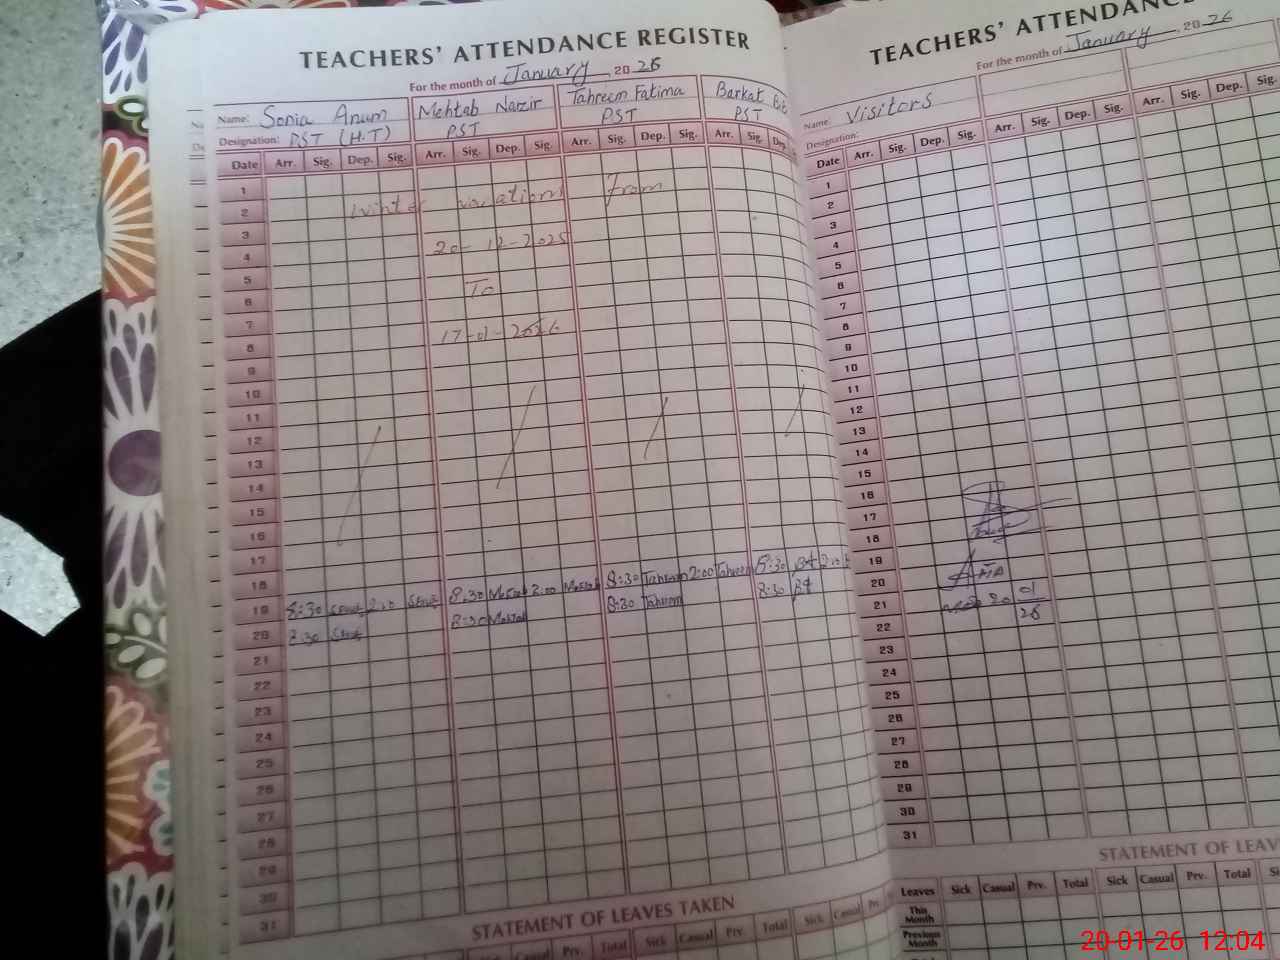 TEACHERS' ATTENDANCE REGISTER
For the month of January 2026
Name: Sonia Anum Mehtab Nazir Tahreem Fatima Barkat Bi
Designation: PST (H.T) PST PST PST
Date Arr. Sig. Dep. Sig. Arr. Sig. Dep. Sig. Arr. Sig. Dep. Sig. Arr. Sig. Dep.
1
2 winter from
3
4 20-12-2025
5
6 To
7
8 17-01-2026
9
10
11
12
13
14
15
16
17
18
19 8:30 2:00 8:30 2:00 8:30 Tahreem 2:00 Tahreem 8:30
20 8:30 8:30 8:30 Tahreem 8:30
21
22
23
24
25
26
27
28
29
30
31
STATEMENT OF LEAVES TAKEN
Prv. Total Sick Casual Prv. Total Sick Casual
TEACHERS' ATTENDANC
For the month of January, 2026
Name: Visitors
Designation:
Date Arr. Sig. Dep. Sig. Arr. Sig. Dep. Sig. Arr. Sig. Dep. Sig.
1
2
3
4
5
6
7
8
9
10
11
12
13
14
15
16
17
18
19
20 01
21 20
22 26
23
24
25
26
27
28
29
30
31
STATEMENT OF LEAV
Leaves Sick Casual Prv. Total Sick Casual Prv. Total
This Month
Previous Month
20-01-26 12:04